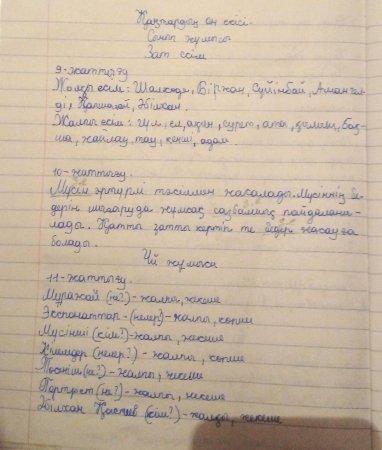 Қаңтардың он екісі.
Сынып жұмысы
Зат есім
9-жаттығу
Жалқы есім: Шалкөде, Біржан, Сүйінбай, Амангел-
ді, Қапшағай, Әбілхан.
Жалпы есім: гүл, ел, ақын, сурет, ата, ғалым, бақ-
ша, жайлау, тау, кенші, адам.
10-жаттығу.
Мүсін әртүрлі тәсілмен жасалады. Мүсіннің бе-
дерін шығаруда жұмсақ сазбалшық пайдаланы-
лады. Қатты затты кертіп те бедер жасауға
болады.
Үй жұмысы
11-жаттығу.
Мұражай (не?) - жалпы, жекеше
Экспонаттар - (нелер?) - жалпы, көпше
Мүсінші (кім?) - жалпы, жекеше
Киімдер (нелер?) - жалпы, көпше
(не?) - жалпы, жекеше
Портрет (не?) - жалпы, жекеше
Әбілхан Қастеев (кім?) - жалқы, жекеше